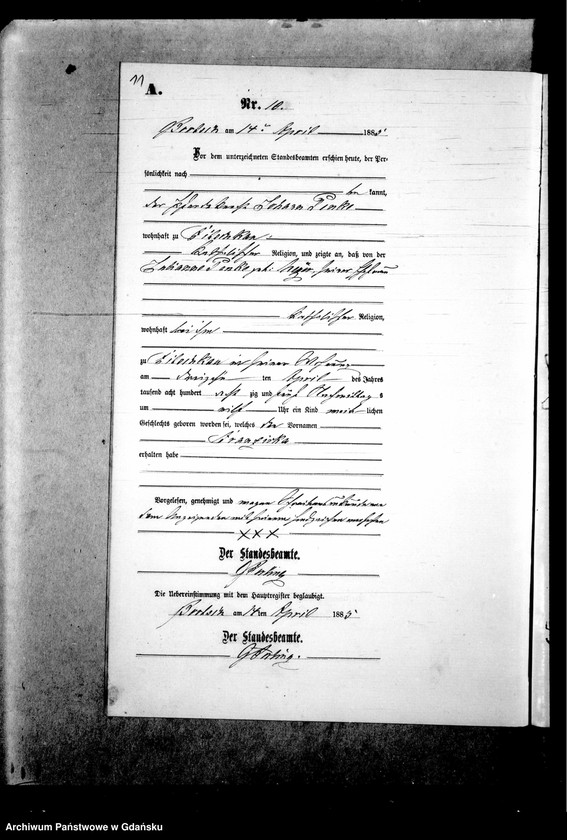 11
A.
Nr. 10.
am 14ten April 1885
Vor dem unterzeichneten Standesbeamten erschien heute, der Per-
sönlichkeit nach
be kannt,
der Johann
wohnhaft zu
katholischer Religion, und zeigte an, daß von der
geb. seiner Ehefrau
katholischer Religion,
wohnhaft bei ihm
zu in seiner Wohnung
am dreizehn ten April des Jahres
tausend acht hundert acht zig und fünf Nachmittag s
um elf Uhr ein Kind weib lichen
Geschlechts geboren worden sei, welches den Vornamen
Franziska
erhalten habe
Vorgelesen, genehmigt und wegen Schreibensunkunde von
dem Anzeigenden mit seinem Handzeichen versehen
XXX
Der Standesbeamte.
Die Uebereinstimmung mit dem Hauptregister beglaubigt.
am 14ten April 1885
Der Standesbeamte.
Archiwum Państwowe w Gdańsku